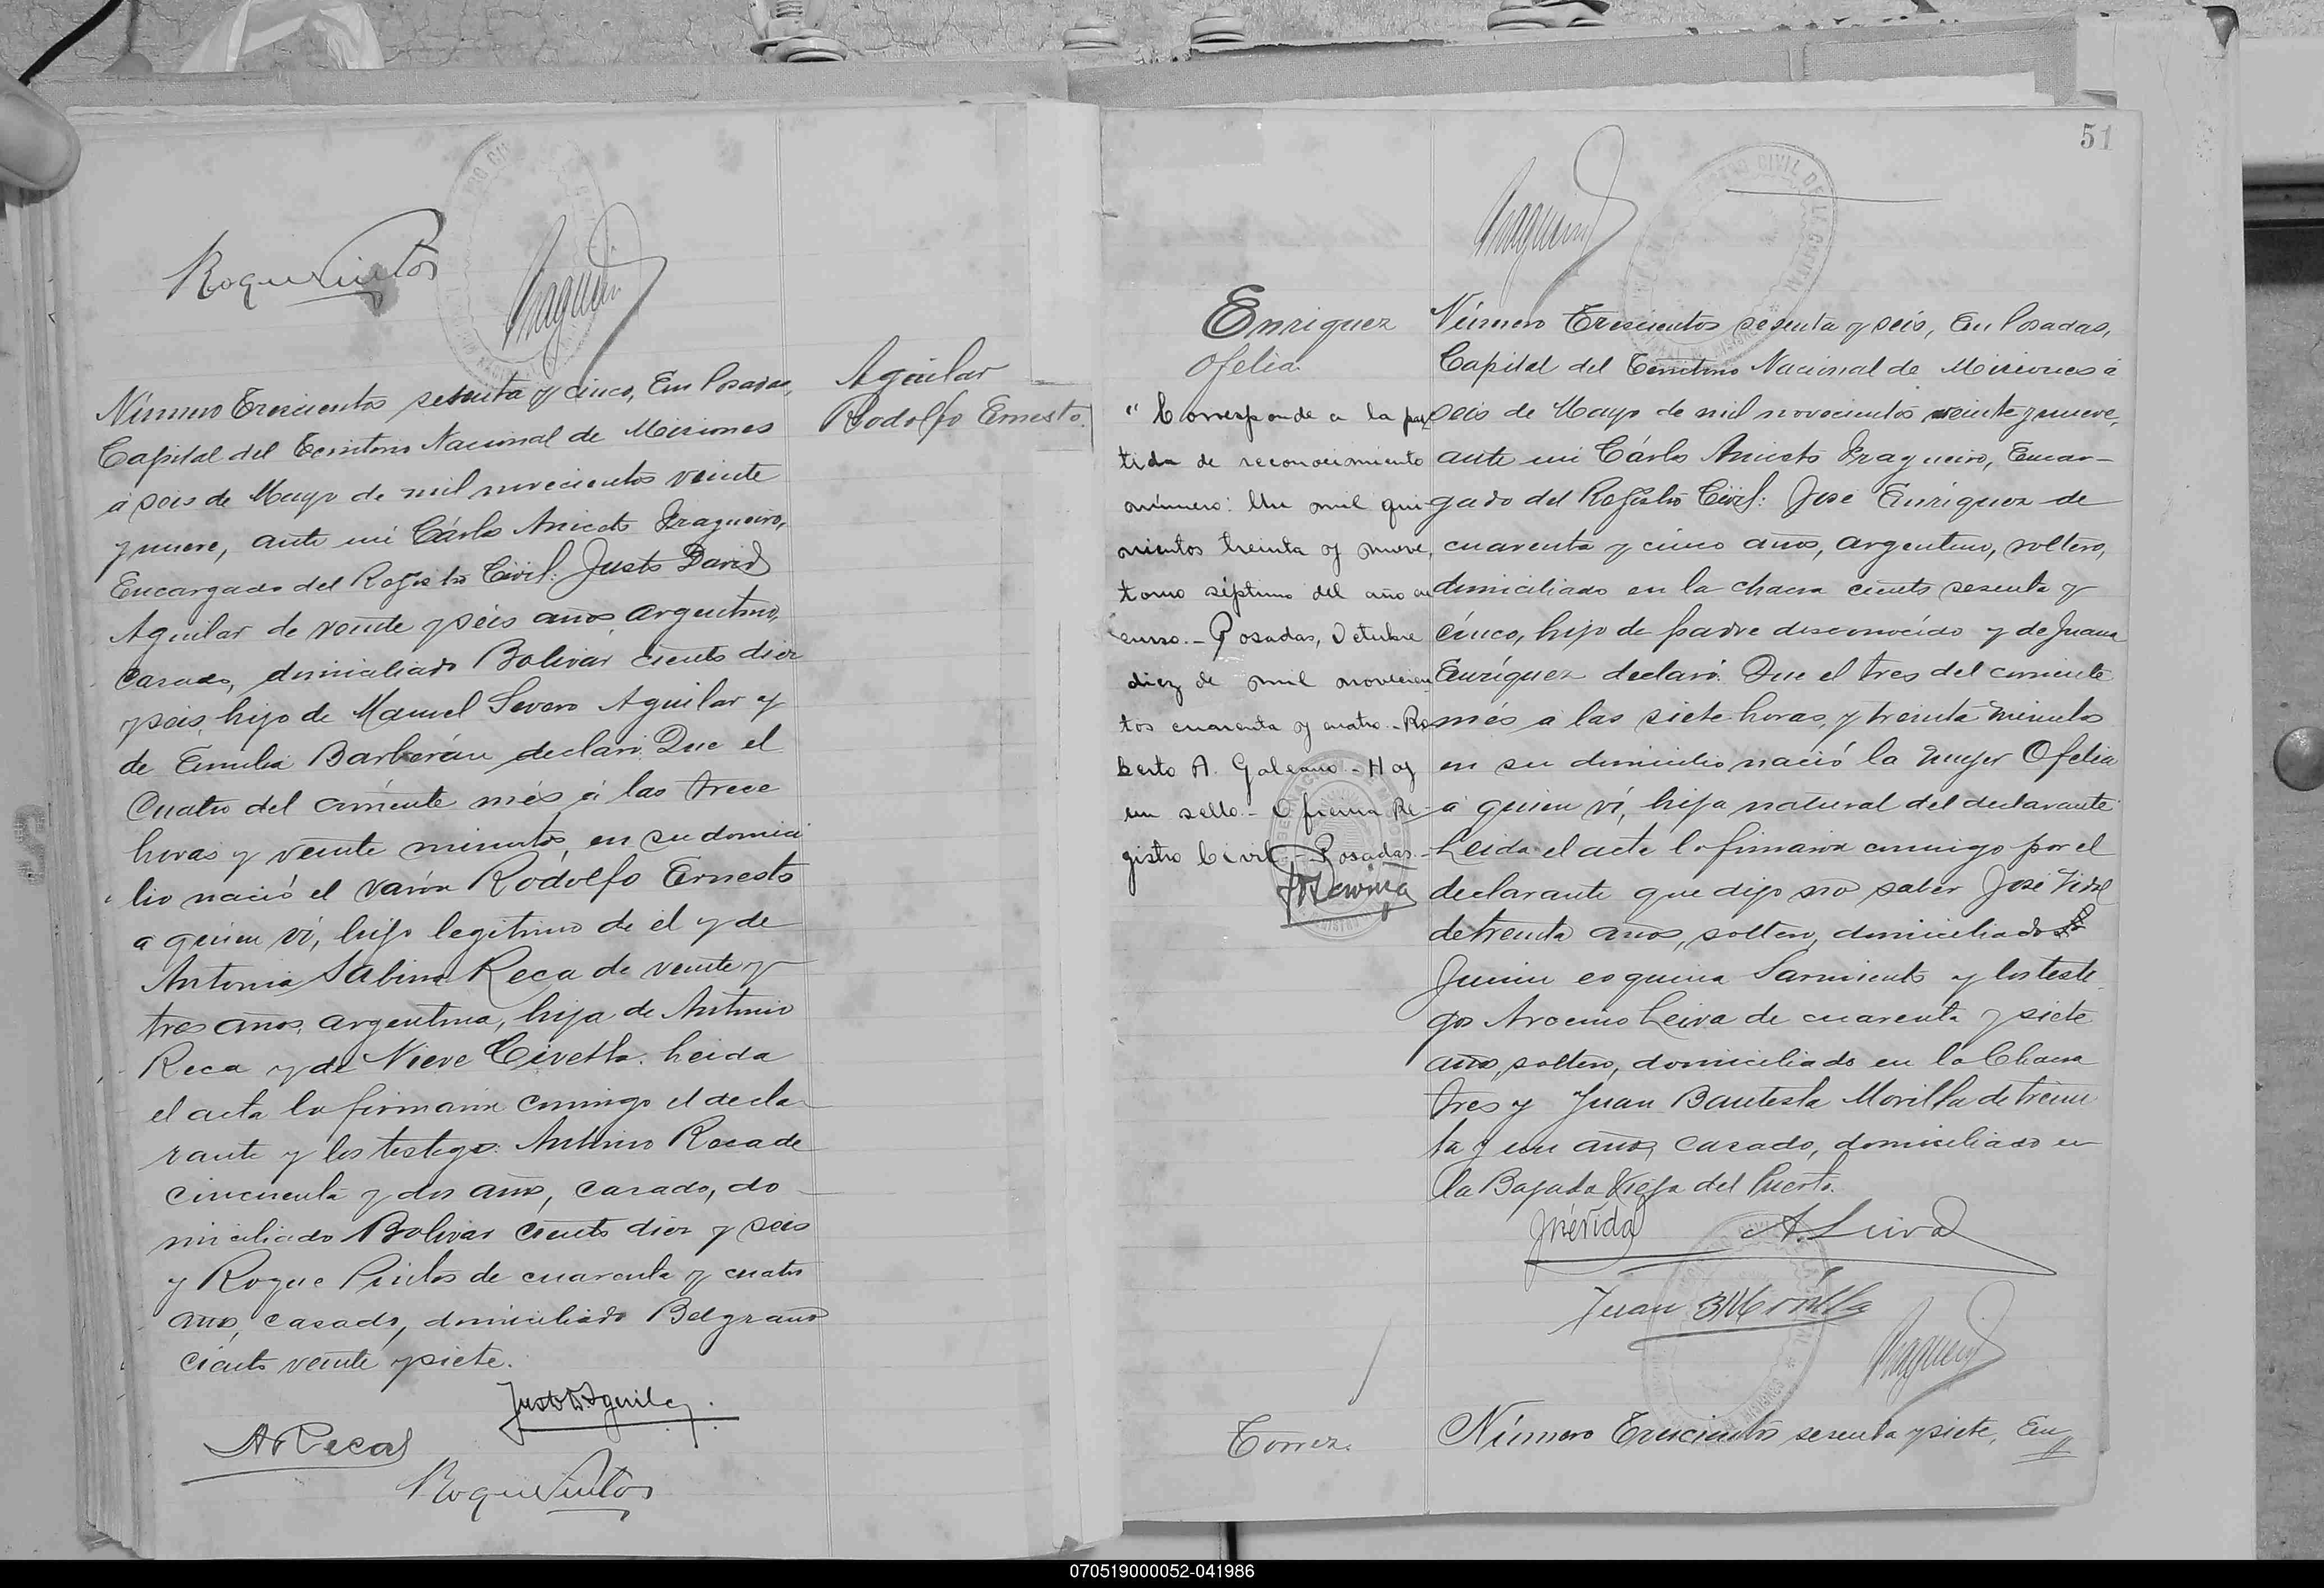 Roque Pintos
Aguilar
Rodolfo Ernesto.
Número Trescientos sesenta y cinco, En Posadas,
Capital del Territorio Nacional de Misiones
á seis de Mayo de mil novecientos veinte
y nueve, ante mí Cárlos Aniceto Fragueiro,
Encargado del Registro Civil: Justo David
Aguilar de veinte y seis años argentino,
casado, domiciliado Bolivar ciento diez
y seis, hijo de Manuel Severo Aguilar y
de Emilia Barberán declaró: Que el
Cuatro del corriente més á las trece
horas y veinte minutos, en su domici
lio nació el varón Rodolfo Ernesto
a quien ví, hijo legitimo de él y de
Antonia Sabina Reca de veinte y
tres años, argentina, hija de Antonio
Reca y de Nieve Civetta. Leida
el acta la firmaron conmigo el decla-
rante y los testigos: Antonio Reca de
cincuenta y dos años, casado, do-
miciliado Bolivar ciento diez y seis
y Roque Pintos de cuarenta y cuatro
años, casado, domiciliado Belgrano
ciento veinte y siete.
Justo D. Aguilar
A. Reca
Roque Pintos
51
Enriquez
Ofelia
"Corresponde a la par
tida de reconocimiento
número: Un mil qui-
nientos treinta y nueve,
tomo séptimo del año en
curso.- Posadas, Octubre
diez de mil novecien
tos cuarenta y cuatro.- Ro
berto A. Galeano - Hay
un sello.- Oficina Re-
gistro Civil.- Posadas.-
Número Trescientos sesenta y seis, En Posadas,
Capital del Territorio Nacional de Misiones á
seis de Mayo de mil novecientos veinte y nueve,
ante mí Cárlos Aniceto Fragueiro, Encar-
gado del Registro Civil: José Enríquez de
cuarenta y cinco años, argentino, soltero,
domiciliado en la chacra ciento sesenta y
cinco, hijo de padre desconocido y de Juana
Enríquez declaró: Que el tres del corriente
més á las siete horas, y treinta minutos
en su domicilio nació la mujer Ofelia
á quien ví, hija natural del declarante
Leida el acta la firmaron conmigo por el
declarante que dijo no saber José Vidal
de treinta años, soltero, domiciliado
Junin esquina Sarmiento y los testi
gos Arcenio Leiva de cuarenta y siete
años, soltero, domiciliado en la Chacra
tres y Juan Bautista Morilla de trein
ta y un años, casado, domiciliado en
la Bajada Vieja del Puerto.
A. Leiva
Juan B Morilla
Torrez.
Número Trescientos sesenta y siete, En
070519000052-041986